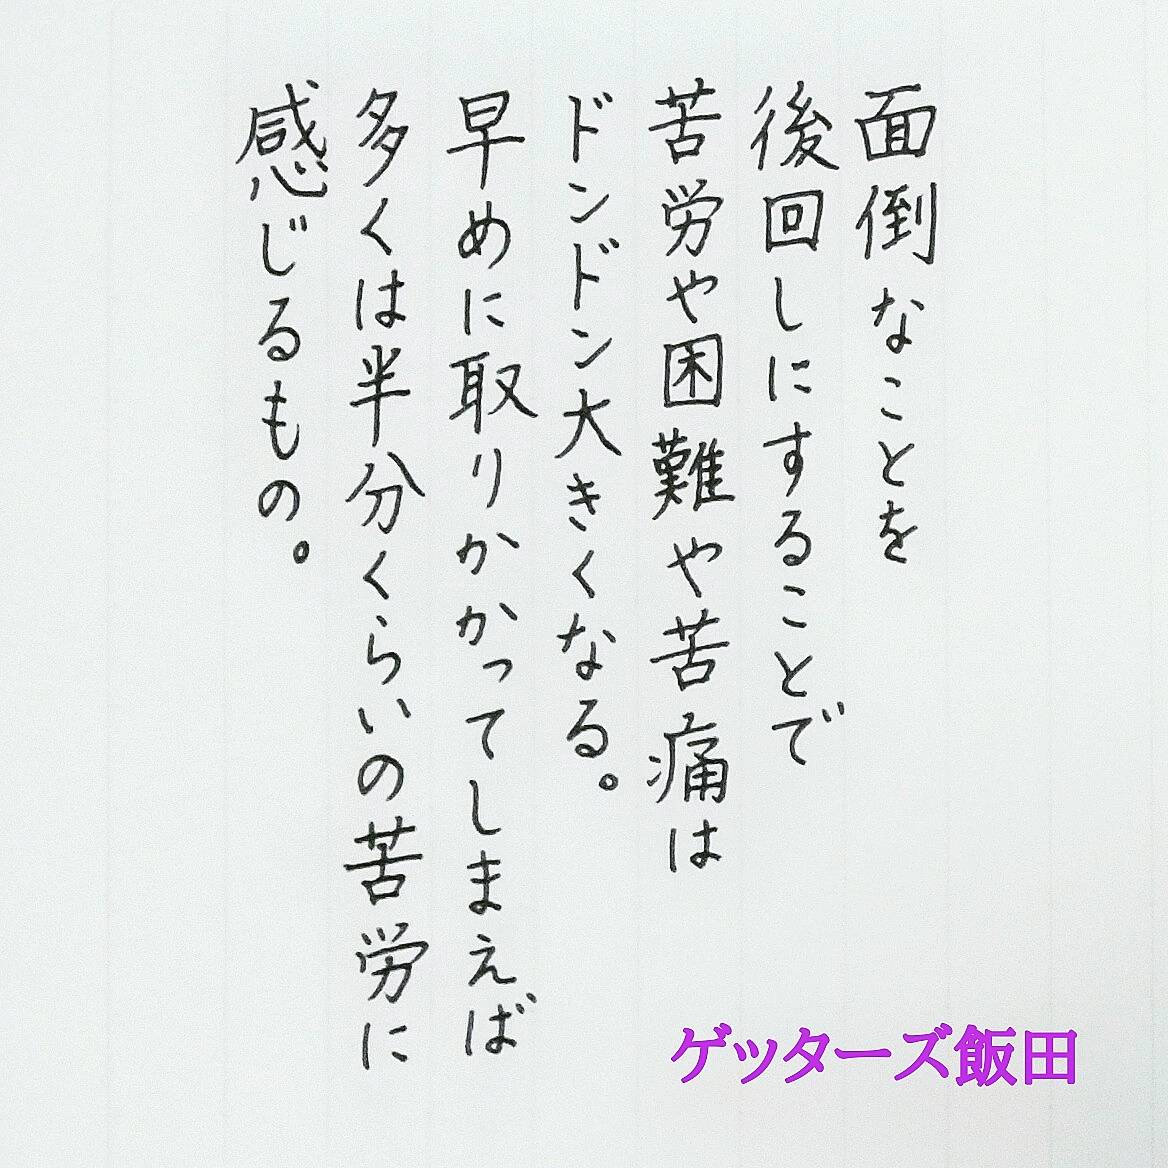 面倒なことを
後回しにすることで
苦労や困難や苦痛は
ドンドン大きくなる。
早めに取りかかってしまえば
多くは半分くらいの苦労に
感じるもの。
ゲッターズ飯田